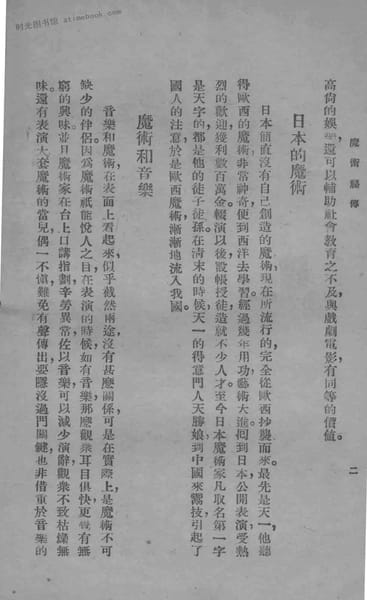 时光图书馆 atimebook.com
魔術秘傳
二
高尙的娛樂,還可以輔助社會教育之不及,與戲劇電影有同等的價値。
日本的魔術
日本簡直沒有自己創造的魔術,現在所流行的,完全從歐西抄襲而來。最先是天一,他聽
得歐西的魔術非常神奇,便到西洋去學習,經過幾年用功,藝術大進,回到日本,公開表演,受熱
烈的歡迎,獲利數百萬金,輟演以後,設帳授徒,造就不少人才。至今日本魔術家,凡取名第一字
是天字的,都是他的徒子徒孫。在清末的時候,天一的得意門人天勝娘,到中國來鬻技,引起了
國人的注意,於是歐西魔術,漸漸地流入我國。
魔術和音樂
音樂和魔術,在表面上看起來,似乎截然兩途,沒有甚麼關係,可是在實際上,是魔術不可
缺少的伴侶。因爲魔術祇能悅人之目,在表演的時候,如有音樂,那麼觀衆耳目俱快,更覺有無
窮的興味。並且魔術家在台上口講指劃,辛勞異常,佐以音樂,可以減少演辭,觀衆不致枯燥無
味。還有表演大套魔術的當兒,偶一不愼,難免有聲傳出,要隱沒過門關鍵,也非借重於音樂的